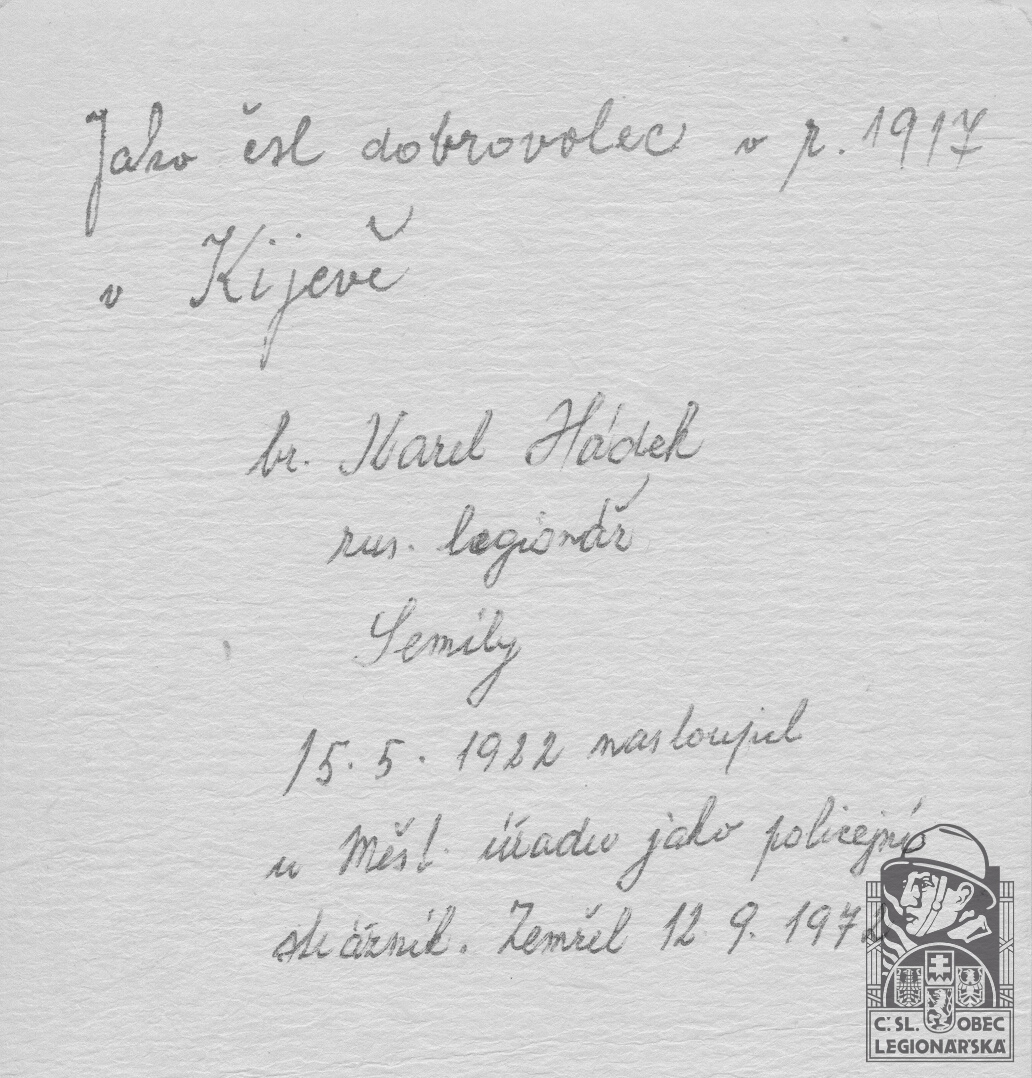 Jako čsl dobrovolec v r. 1917
v Kijevě
br. Karel Hádek
rus. legionář
Semily
15. 5. 1922 nastoupil
u Měst. úřadu jako policejní
strážník. Zemřel 12. 9. 1972
Č.SL. OBEC
LEGIONÁŘSKÁ